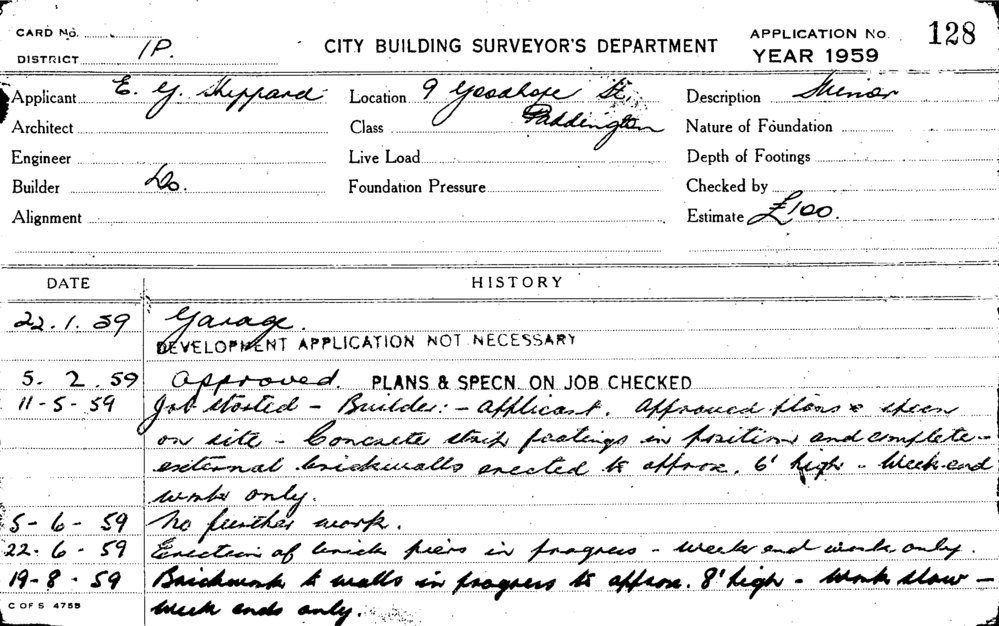 CARD No.
DISTRICT 1P.
CITY BUILDING SURVEYOR'S DEPARTMENT
APPLICATION No. 128
YEAR 1959
Applicant E. G. Sheppard Location 9 Goodhope St, Description Minor
Architect Class Paddington Nature of Foundation
Engineer Live Load Depth of Footings
Builder Do. Foundation Pressure Checked by
Alignment Estimate £100.
DATE HISTORY
22.1.59 Garage.
DEVELOPMENT APPLICATION NOT NECESSARY
5.2.59 Approved. PLANS & SPECN. ON JOB CHECKED
11-5-59 Job started - Builder:- applicant. Approved plans & specn
on site - Concrete strip footings in position and complete -
external brickwalls erected to approx. 6' high - Week-end
work only.
5-6-59 No further work.
22-6-59 Erection of brick piers in progress - week end work only.
19-8-59 Brickwork to walls in progress to approx. 8' high - work slow -
week ends only.
C OF S 4755